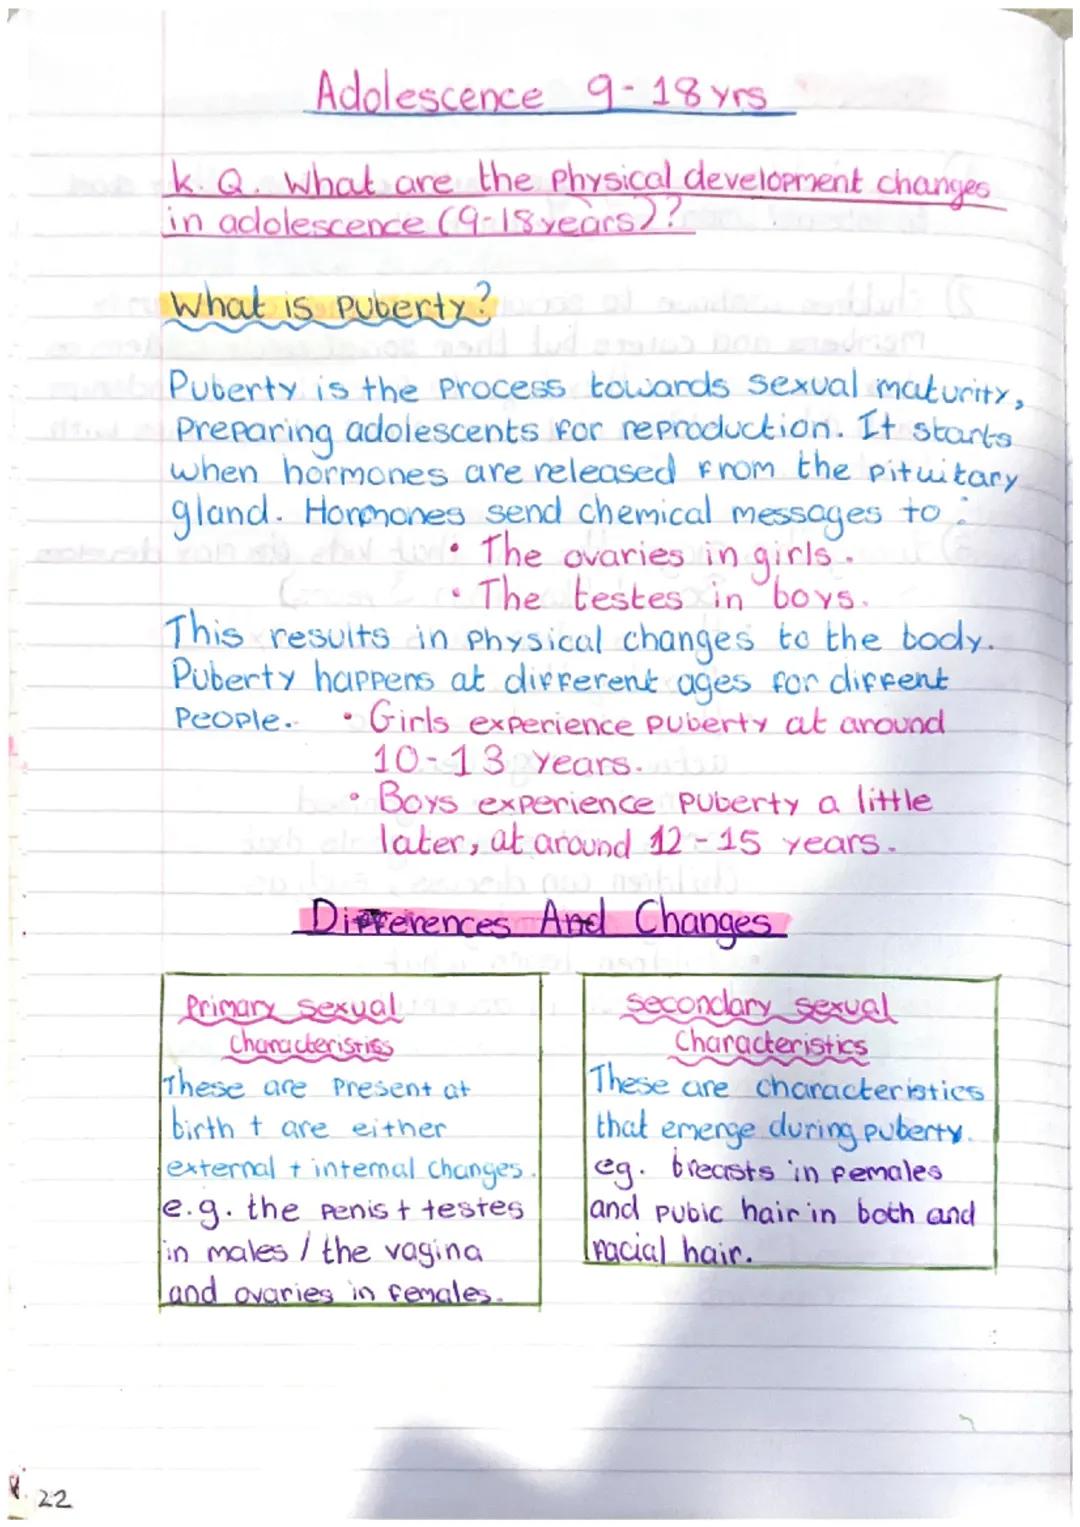 Adolescence 9-18 yrs
K.Q. What are the physical development changes
in adolescence (9-18 years)?
What is puberty?
Puberty is the process towards sexual maturity,
preparing adolescents for reproduction. It starts
when hormones are released from the pituitary
gland. Hormones send chemical messages to:
• The ovaries in girls.
• The testes in boys.
This results in physical changes to the body.
Puberty happens at different ages for diffent
people. • Girls experience puberty at around
10-13 years.
• Boys experience puberty a little
later, at around 12-15 years.
Differences And Changes
Primary sexual
Characteristiss
These are present at
birth + are either
external + internal changes.
e.g. the penis + testes
in males / the vagina
and ovaries in females.
secondary sexual
Characteristics
These are characteristics
that emerge during puberty.
eg. breasts in females
and pubic hair in both and
facial hair.
22